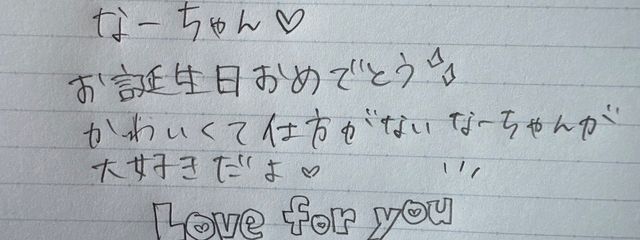 なーちゃん♡
お誕生日おめでとう✧✧
かわいくて仕方がないなーちゃんが
大好きだよ♡
Love for you